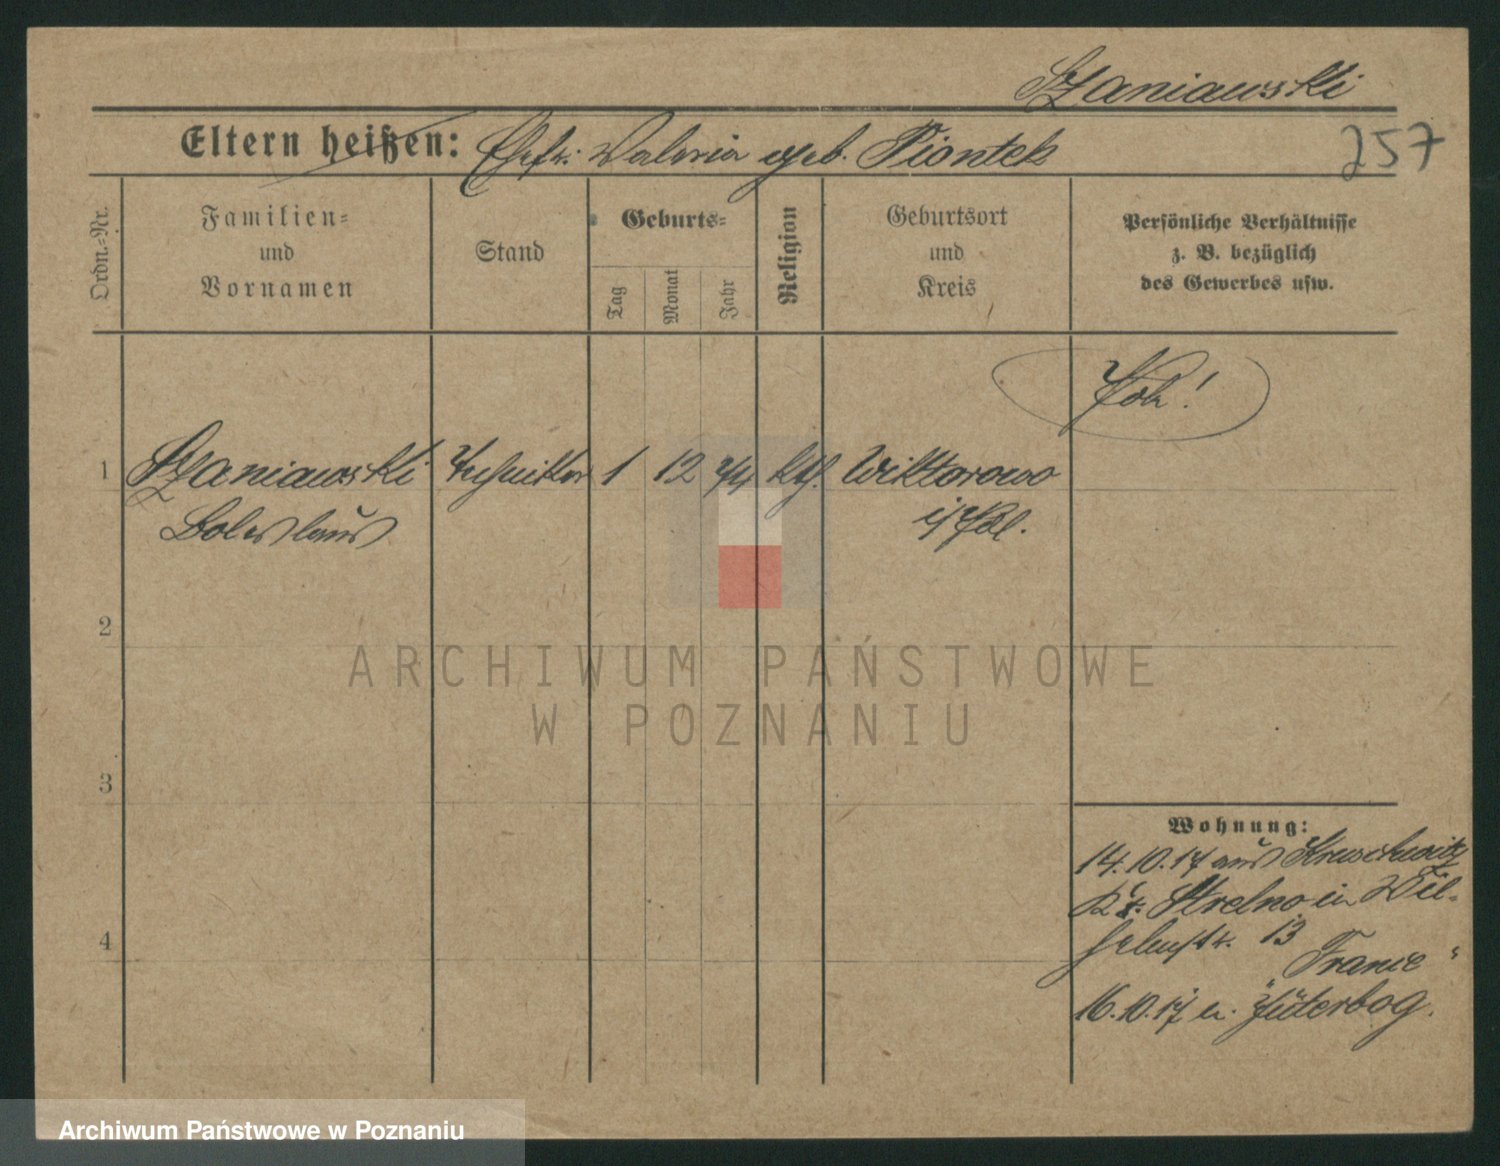 Szaniawski
Eltern heißen: Ehefr. Valeria geb. Piontek
257
Ordn.-Nr.
Familien-
und
Vornamen
Stand
Geburts-
Tag
Monat
Jahr
Religion
Geburtsort
und
Kreis
Persönliche Verhältnisse
z. B. bezüglich
des Gewerbes usw.
1 Szaniawski Techniker 1 12 74 kth. Wiktorowo
Boleslaus
i/Pol.
2
ARCHIWUM PAŃSTWOWE
W POZNANIU
3
4
Wohnung:
14.10.17 aus Kruschwitz
Kr. Strelno in Wil-
helmstr. 13
"
16.10.17 n. Jüterbog.
Archiwum Państwowe w Poznaniu